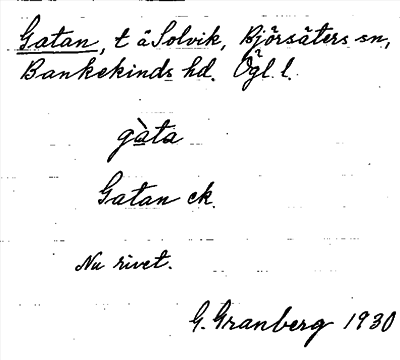 Gatan, t ä Solvik, Björsäters sn,
Bankekinds hd. Ögl. l.
gàta
Gatan ek.
Nu rivet.
G. Granberg 1930